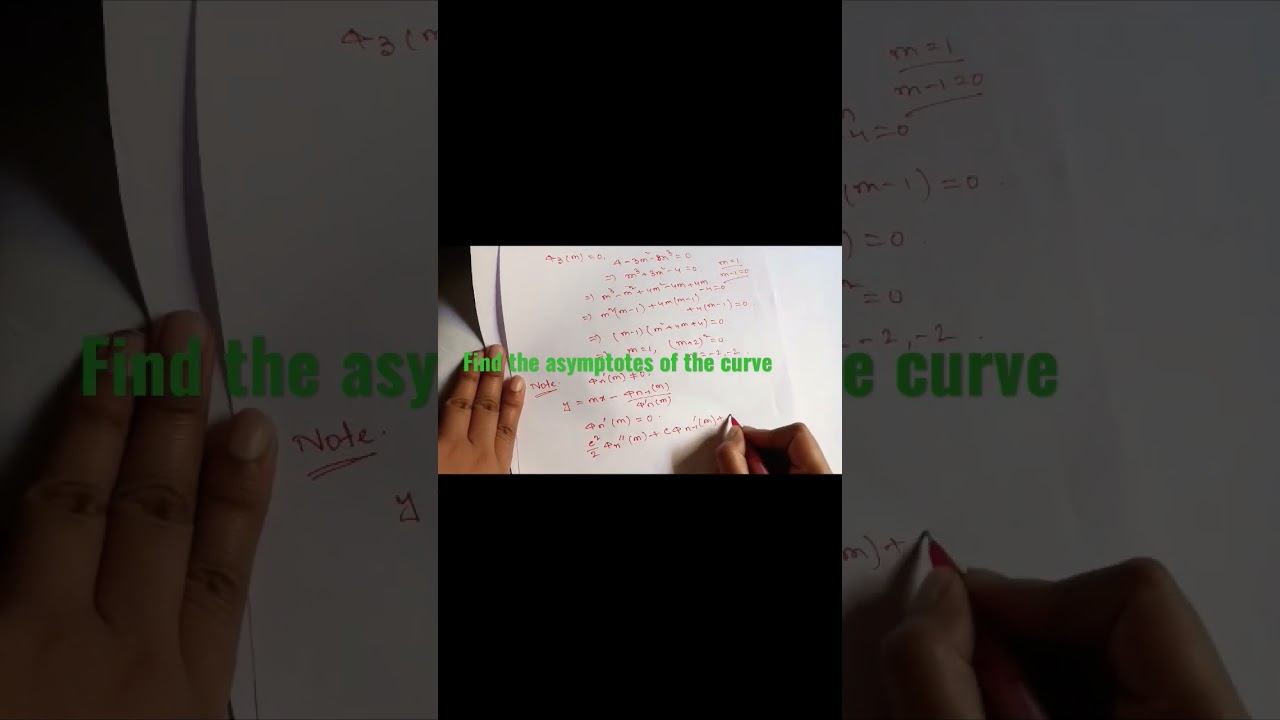 φ₃(m) = 0, 4 - 3m² - m³ = 0
⇒ m³ + 3m² - 4 = 0
m = 1
m - 1 = 0
⇒ m³ - m² + 4m² - 4m + 4m - 4 = 0
⇒ m²(m-1) + 4m(m-1) + 4(m-1) = 0.
⇒ (m-1)(m² + 4m + 4) = 0
m = 1, (m+2)² = 0
= -2, -2.
Find the asymptotes of the curve
Note. φn'(m) ≠ 0,
y = mx - φn-1(m) / φ'n(m)
φn'(m) = 0.
c²/2 φn''(m) + c φn-1'(m) +